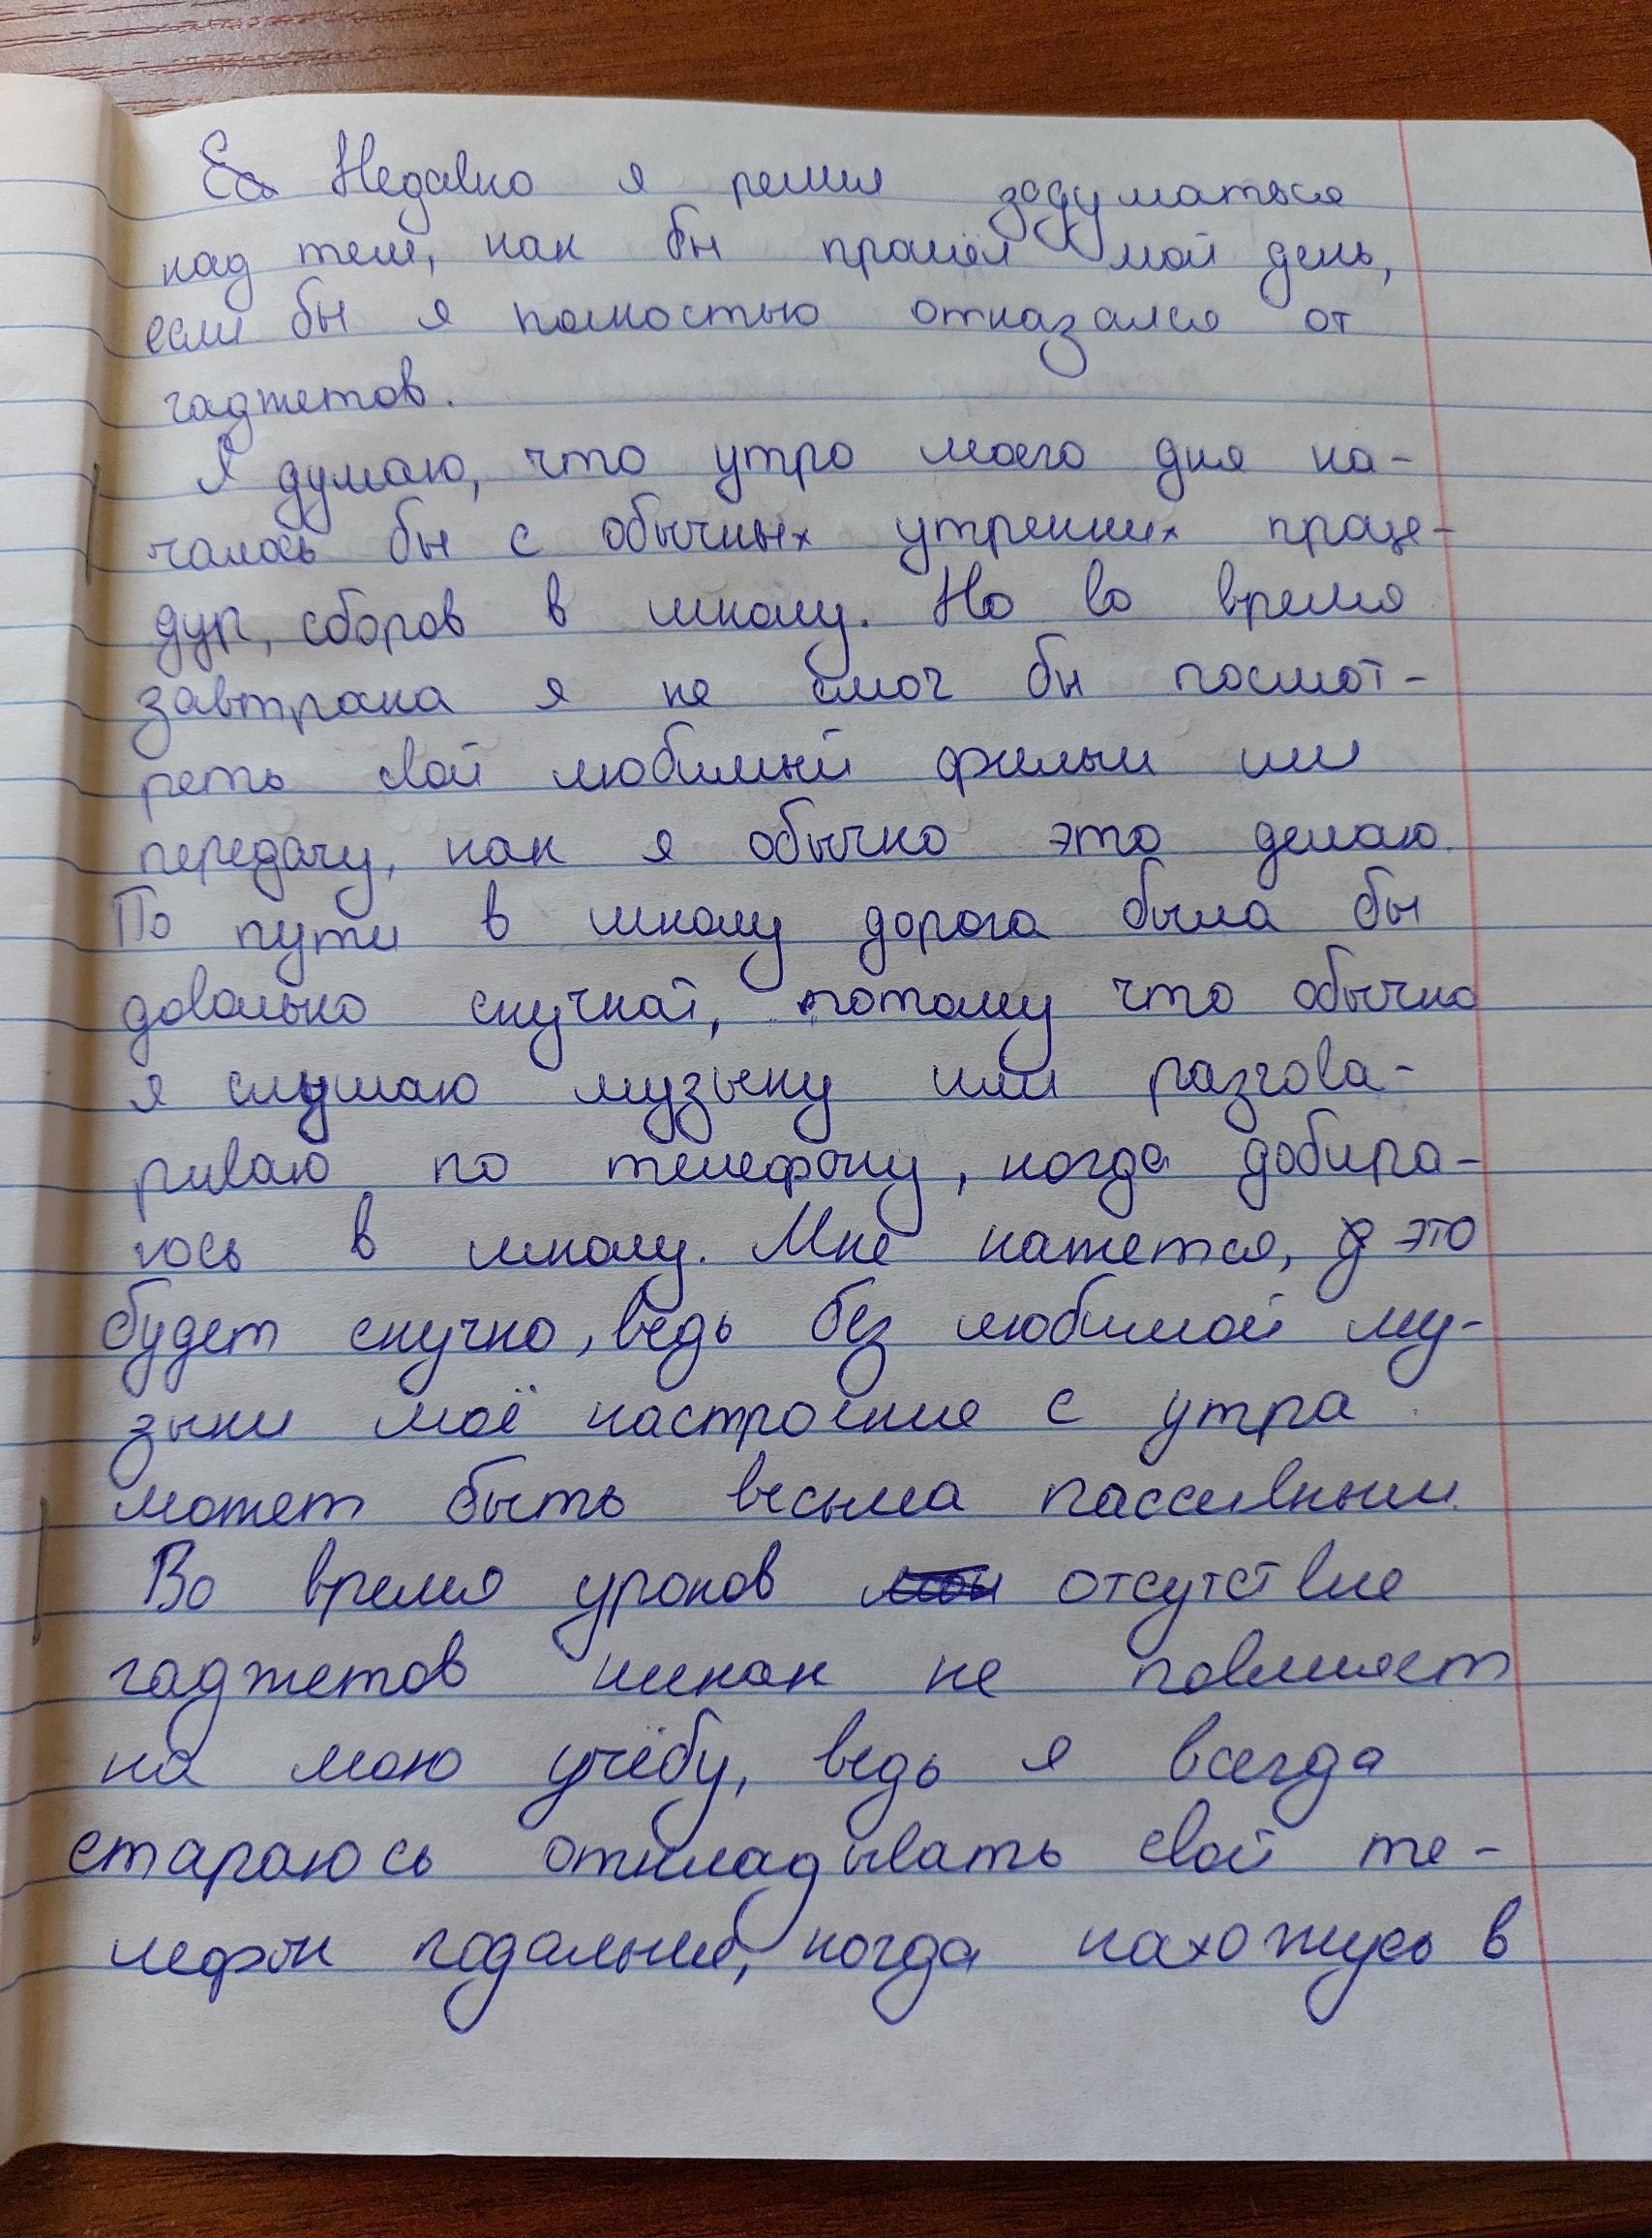 Недавно я решил задуматься
над тем, как бы прошёл мой день,
если бы я полностью отказался от
гаджетов.
Я думаю, что утро моего дня на-
чалось бы с обычных утренних проце-
дур, сборов в школу. Но во время
завтрака я не смог бы посмот-
реть свой любимый фильм или
передачу, как я обычно это делаю.
По пути в школу дорога была бы
довольно скучной, потому что обычно
я слушаю музыку или разгова-
риваю по телефону, когда добира-
юсь в школу. Мне кажется, это
будет скучно, ведь без любимой му-
зыки моё настроение с утра
может быть весьма пассивным.
Во время уроков отсутствие
гаджетов никак не повлияет
на мою учёбу, ведь я всегда
стараюсь откладывать свой те-
лефон подальше, когда нахожусь в